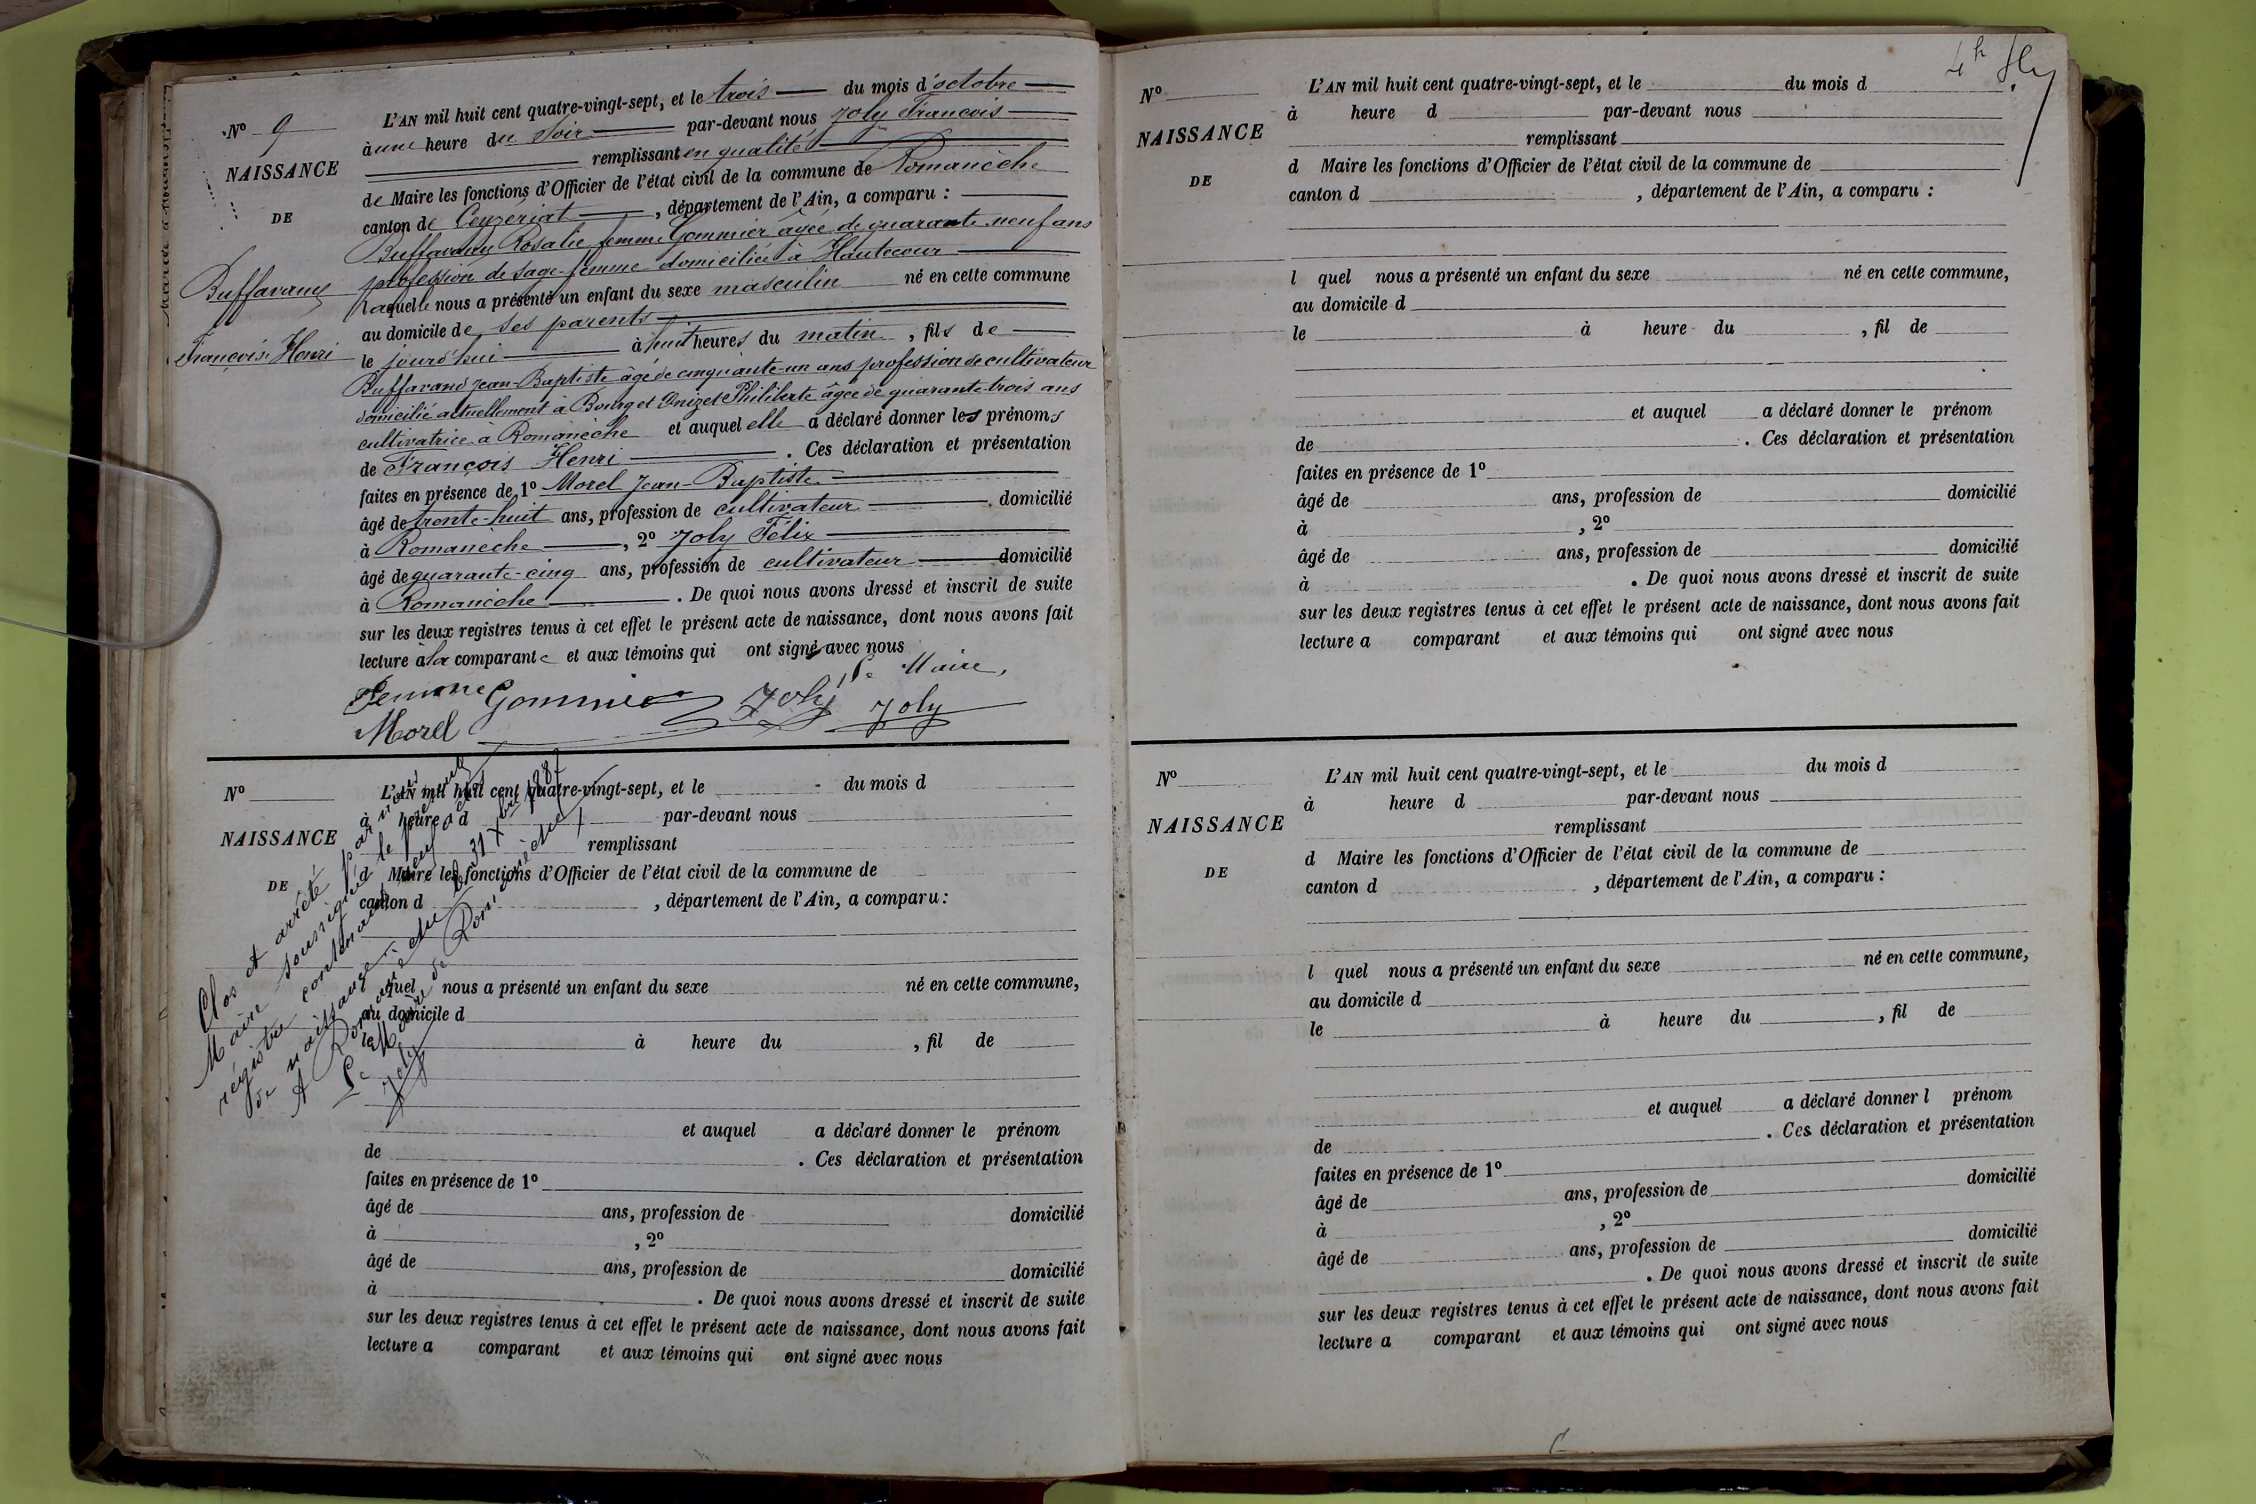 N° 9
NAISSANCE
DE
Buffavand
François Henri
L'AN mil huit cent quatre-vingt-sept, et le trois du mois d'octobre
à une heure du soir par-devant nous Joly François
remplissant en qualité
de Maire les fonctions d'Officier de l'état civil de la commune de Romanèche
canton de Ceyzériat, département de l'Ain, a comparu :
Buffavand Rosalie femme Gommier âgée de quarante neuf ans
profession de sage-femme domiciliée à Hautecour
Laquelle nous a présenté un enfant du sexe masculin né en cette commune
au domicile de ses parents
le jourd'hui à huit heures du matin, fils de
Buffavand Jean-Baptiste âgé de cinquante-un ans profession de cultivateur
domicilié actuellement à Bourg et Philiberte âgée de quarante-trois ans
cultivatrice à Romanèche et auquel elle a déclaré donner les prénoms
de François Henri. Ces déclaration et présentation
faites en présence de 1° Morel Jean-Baptiste
âgé de trente-huit ans, profession de cultivateur domicilié
à Romanèche, 2° Joly Félix
âgé de quarante-cinq ans, profession de cultivateur domicilié
à Romanèche. De quoi nous avons dressé et inscrit de suite
sur les deux registres tenus à cet effet le présent acte de naissance, dont nous avons fait
lecture à la comparante et aux témoins qui ont signé avec nous
Le Maire,
Femme Gommier Joly Joly
Morel
N°
NAISSANCE
DE
L'AN mil huit cent quatre-vingt-sept, et le du mois d
à heure d par-devant nous
remplissant
d Maire les fonctions d'Officier de l'état civil de la commune de
canton d , département de l'Ain, a comparu :
l quel nous a présenté un enfant du sexe né en cette commune,
au domicile d
le à heure du , fil de
et auquel a déclaré donner le prénom
de . Ces déclaration et présentation
faites en présence de 1°
âgé de ans, profession de domicilié
à , 2°
âgé de ans, profession de domicilié
à . De quoi nous avons dressé et inscrit de suite
sur les deux registres tenus à cet effet le présent acte de naissance, dont nous avons fait
lecture a comparant et aux témoins qui ont signé avec nous
Clos et arrêté par nous
Maire soussigné le présent
régistre contenant neuf actes
de naissance
A Romanèche le 31 Xbre 1887
Le Maire de Romanèche
Joly
4h
N°
NAISSANCE
DE
L'AN mil huit cent quatre-vingt-sept, et le du mois d
à heure d par-devant nous
remplissant
d Maire les fonctions d'Officier de l'état civil de la commune de
canton d , département de l'Ain, a comparu :
l quel nous a présenté un enfant du sexe né en cette commune,
au domicile d
le à heure du , fil de
et auquel a déclaré donner le prénom
de . Ces déclaration et présentation
faites en présence de 1°
âgé de ans, profession de domicilié
à , 2°
âgé de ans, profession de domicilié
à . De quoi nous avons dressé et inscrit de suite
sur les deux registres tenus à cet effet le présent acte de naissance, dont nous avons fait
lecture a comparant et aux témoins qui ont signé avec nous
N°
NAISSANCE
DE
L'AN mil huit cent quatre-vingt-sept, et le du mois d
à heure d par-devant nous
remplissant
d Maire les fonctions d'Officier de l'état civil de la commune de
canton d , département de l'Ain, a comparu :
l quel nous a présenté un enfant du sexe né en cette commune,
au domicile d
le à heure du , fil de
et auquel a déclaré donner l prénom
de . Ces déclaration et présentation
faites en présence de 1°
âgé de ans, profession de domicilié
à , 2°
âgé de ans, profession de domicilié
. De quoi nous avons dressé et inscrit de suite
sur les deux registres tenus à cet effet le présent acte de naissance, dont nous avons fait
lecture a comparant et aux témoins qui ont signé avec nous